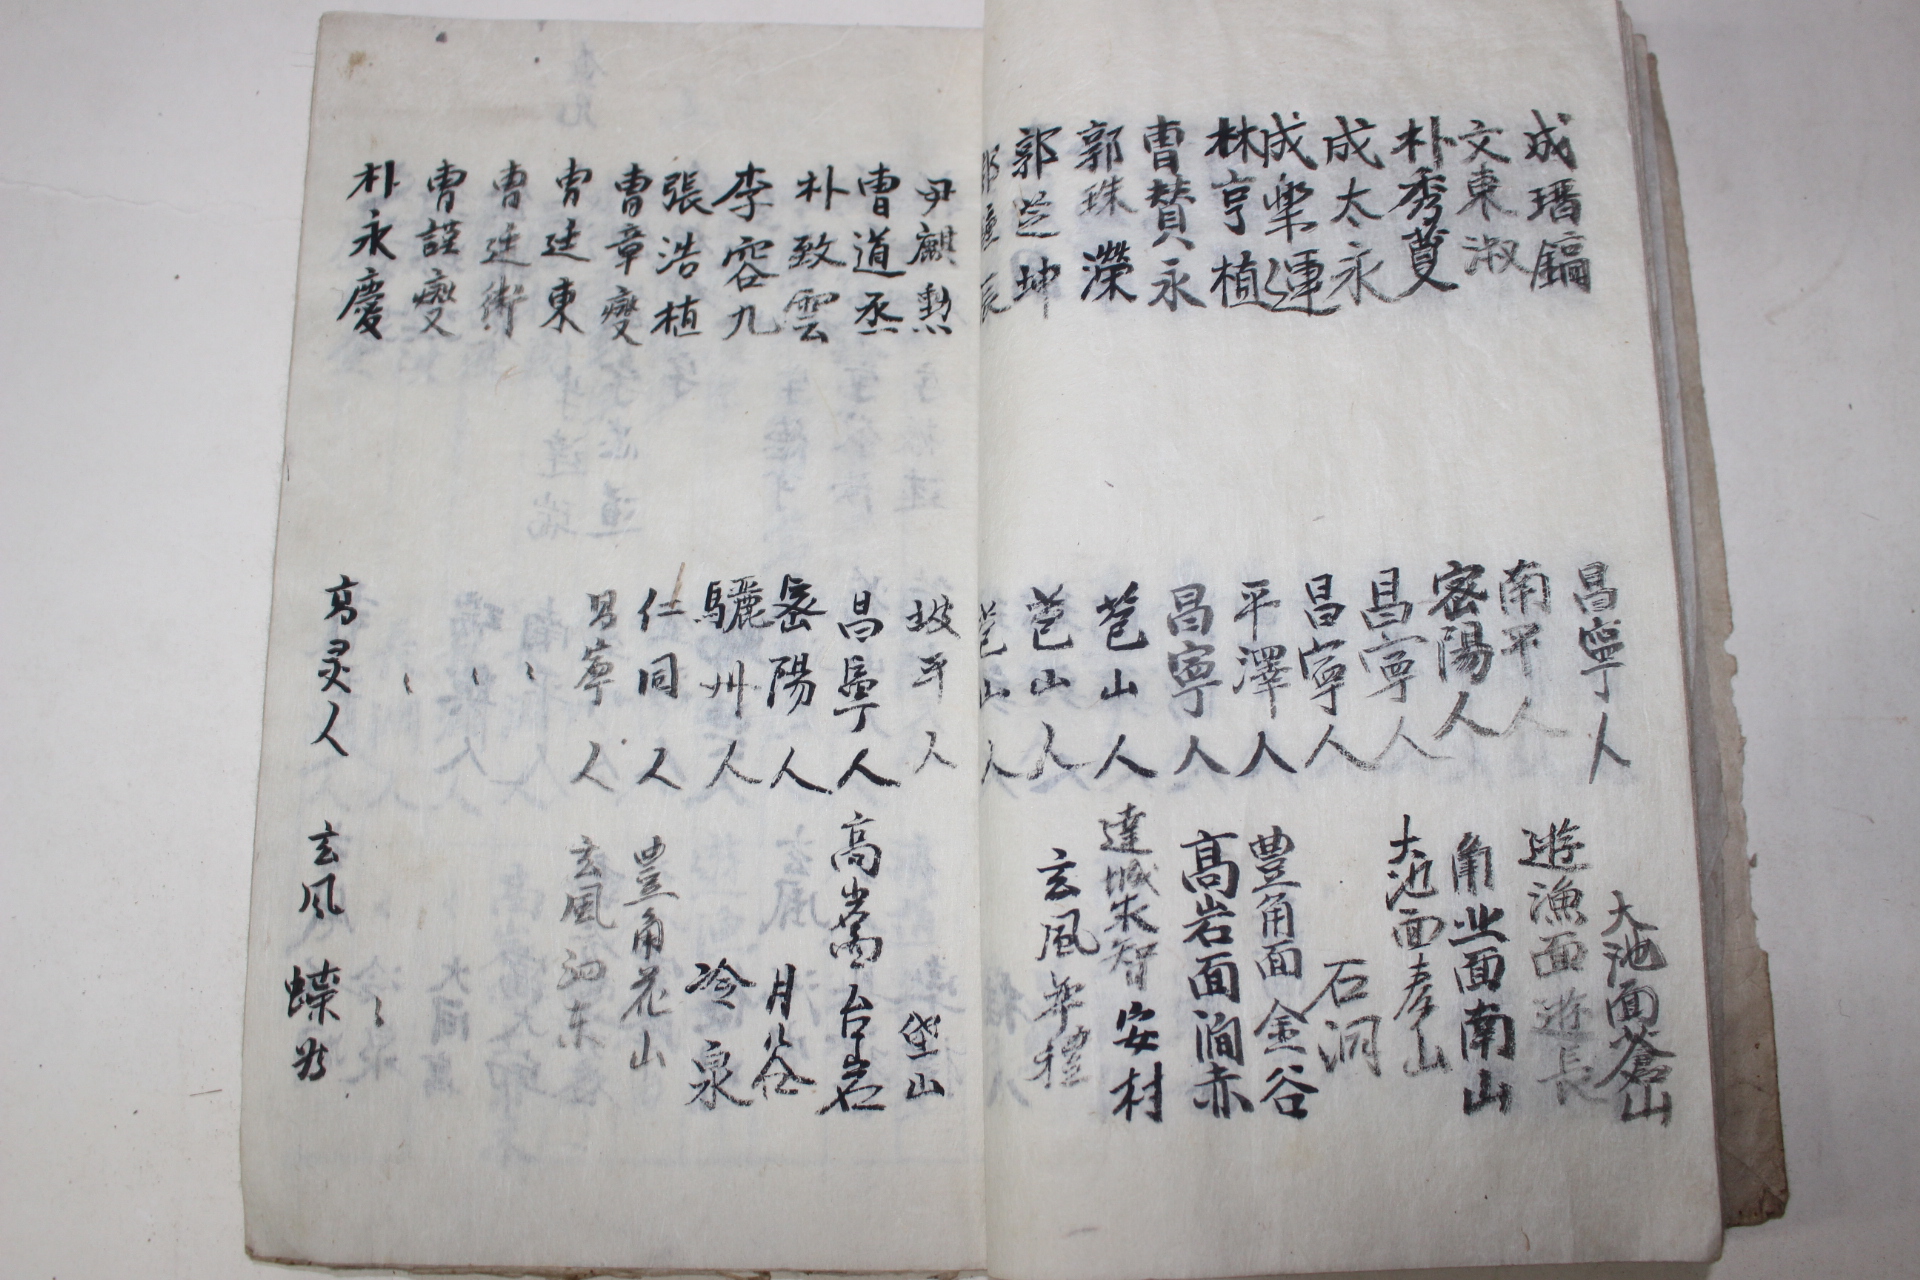 成瑨鎬 昌寧人 大池面蒼山
文東淑 南平人 遊漁面遊長
朴秀蔓 密陽人 角业面南山
成太永 昌寧人 大池面孝山
成樂運 昌寧人 石洞
林亨植 平澤人 豊角面金谷
曺賛永 昌寧人 高岩面澗赤
郭珠濚 苞山人 達城求智安村
郭芝坤 苞山人 玄風華禮
郭鍾辰 苞山人
尹麒勲 坡平人 垈山
曺道丞 昌寧人 高岩面台岩
朴致雲 密陽人 月谷
李容九 驪州人 冷泉
張浩植 仁同人 豊角花山
曺章燮 昌寧人 玄風泗东
曺廷東 〻
曺廷術 〻
曺謹燮 〻 〻
朴永慶 高灵人 玄風